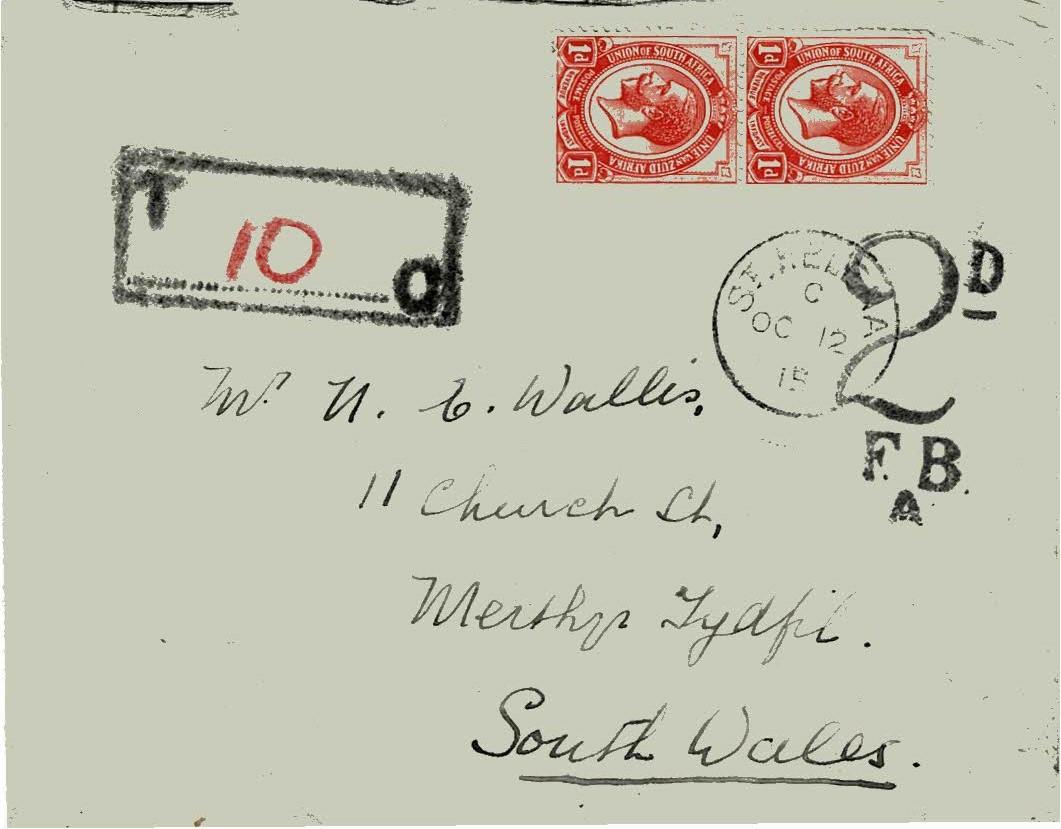 1d UNION OF SOUTH AFRICA 1d
POSTAGE POSTZEGEL
REVENUE INKOMST
UNIE VAN ZUID AFRIKA
1d UNION OF SOUTH AFRICA 1d
POSTAGE POSTZEGEL
REVENUE INKOMST
UNIE VAN ZUID AFRIKA
T
10
O
ST. HELENA
C
OC 12
15
2D
F.B.
A
Mr. N. E. Wallis,
11 Church St,
Merthyr Tydfil.
South Wales.